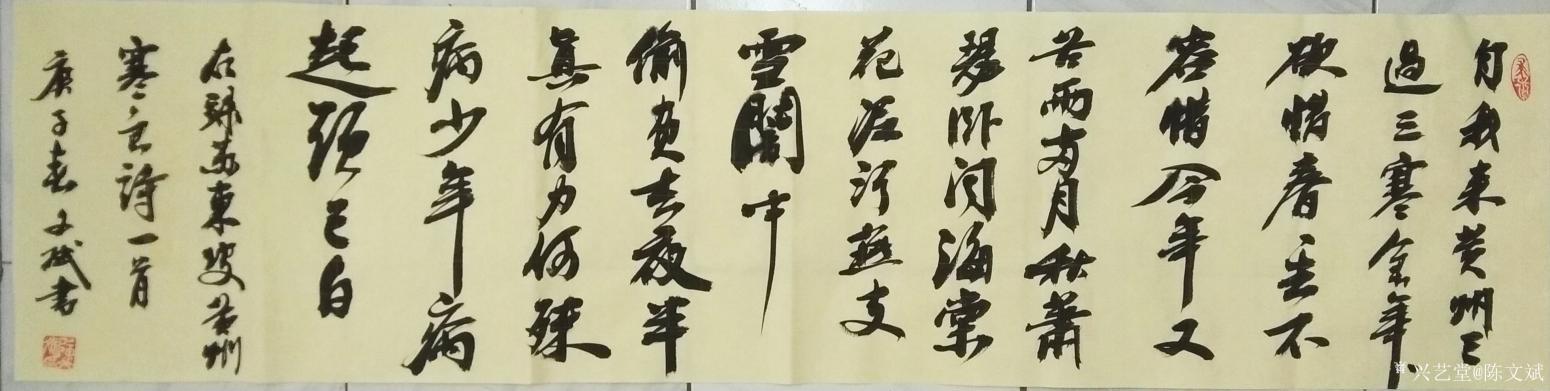 自我来黄州已
過三寒食年々
欲惜春去不
容惜今年又
苦雨两月秋蕭
瑟卧闻海棠
花泥污燕支
雪闇中
偷負去夜半
真有力何殊
病少年病
起頭已白
右録苏東坡黄州
寒食詩一首
庚子春文斌書
兴艺堂@陈文斌